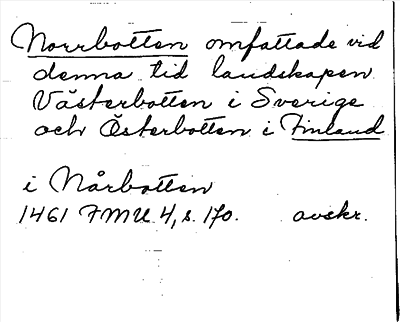 Norrbotten omfattade vid
denna tid landskapen
Västerbotten i Sverige
och Österbotten i Finland
i Nårbotten
1461 FMU 4, s. 170. avskr.